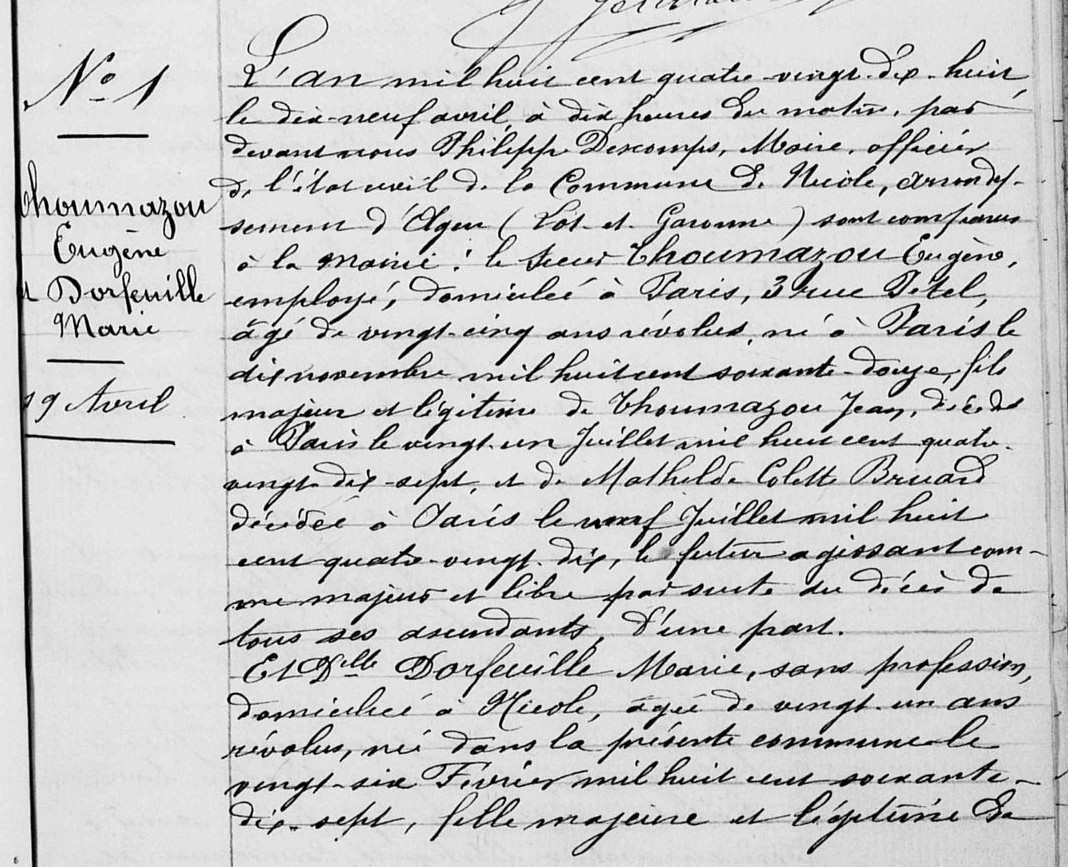 N° 1
Thoumazou
Eugène
et Dorfeuille
Marie
19 Avril
L'an mil huit cent quatre-vingt-dix-huit,
le dix-neuf avril, à dix heures du matin, par
devant nous Philippe Descomps, Maire, officier
de l'état civil de la Commune de Nicole, arrondis-
sement d'Agen (Lot-et-Garonne) sont comparus
à la Mairie : le Sieur Thoumazou Eugène,
employé, domicilié à Paris, 3 rue Petel,
âgé de vingt-cinq ans révolus, né à Paris le
dix novembre mil huit cent soixante-douze, fils
majeur et légitime de Thoumazou Jean, décédé
à Paris le vingt-un Juillet mil huit cent quatre-
vingt-dix-sept, et de Mathilde Colette Bruard
décédée à Paris le neuf Juillet mil huit
cent quatre-vingt-dix, le futur agissant com-
me majeur et libre par suite du décès de
tous ses ascendants, d'une part.
Et Dlle Dorfeuille Marie, sans profession,
domiciliée à Nicole, âgée de vingt-un ans
révolus, née dans la présente commune le
vingt-six Février mil huit cent soixante-
dix-sept, fille majeure et légitime de